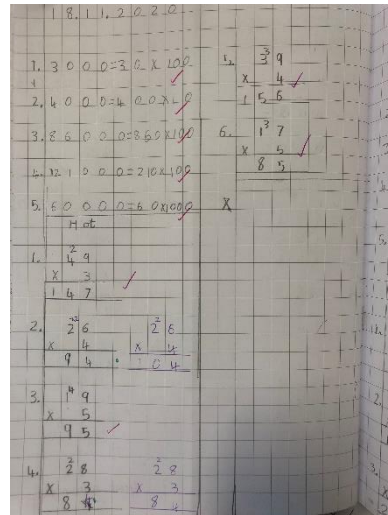 18.11.2020
1. 3000=30x100
2. 4000=400x10
3. 86000=860x100
4. 21000=210x100
5. 60000=60x1000
Hot
1. 49
x 3
147
2. 26
x 4
94.
26
x 4
104
3. 19
x 5
95
4. 28
x 3
8
28
x 3
84
5. 39
x 4
156
6. 17
x 5
85